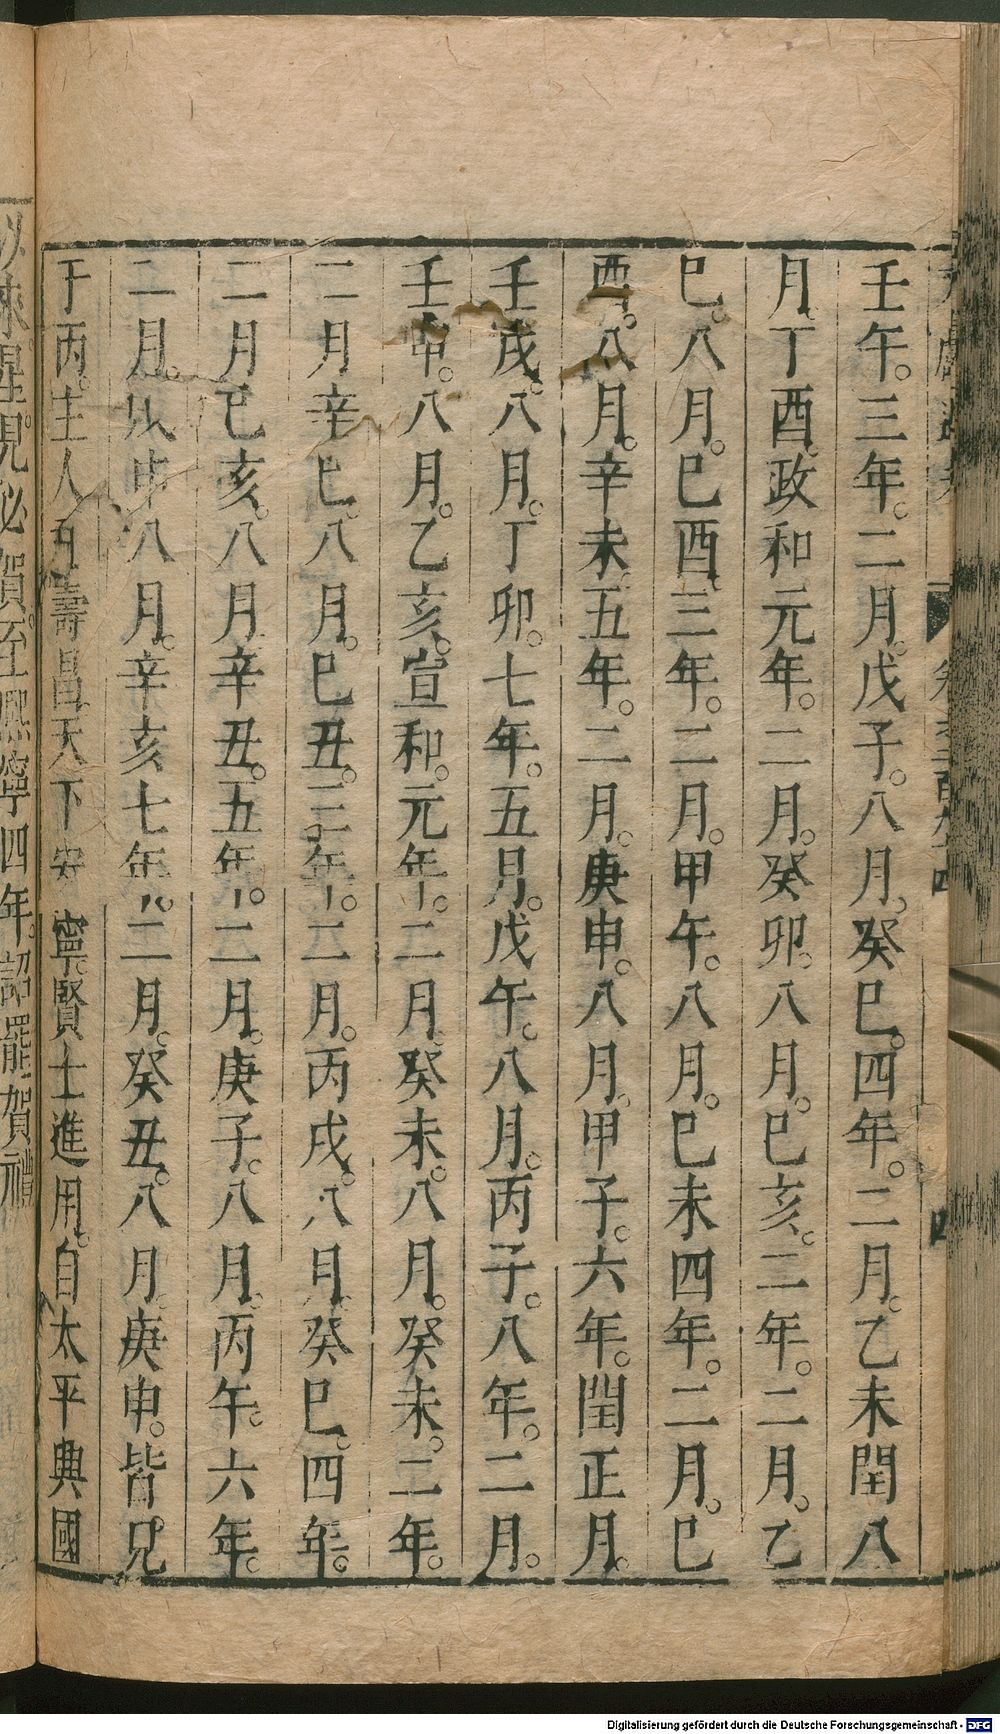 壬午。三年。二月。戊子。八月。癸巳。四年。二月。乙未閏八
月。丁酉。政和元年。二月。癸卯。八月。巳亥。二年。二月。乙
巳。八月。巳酉。三年。二月。甲午。八月。巳未四年。二月。巳
酉。八月。辛未。五年。二月。庚申。八月。甲子。六年。閏正月。
壬戌。八月。丁卯。七年。五月。戊午。八月。丙子。八年。二月。
壬申。八月。乙亥。宣和。元年。二月。癸未。八月。癸未。二年。
二月辛巳。八月。巳丑。三年。二月。丙戌。八月。癸巳。四年。
二月巳亥。八月辛丑。五年。二月。庚子。八月。丙午。六年。
二月。戊申八月。辛亥七年。二月。癸丑。八月。庚申。皆見
于丙。主人君壽昌天下安寧。賢士進用。自太平興國
以來星見必賀。至熙寧四年。詔罷賀禮
四
Digitalisierung gefördert durch die Deutsche Forschungsgemeinschaft - DFG